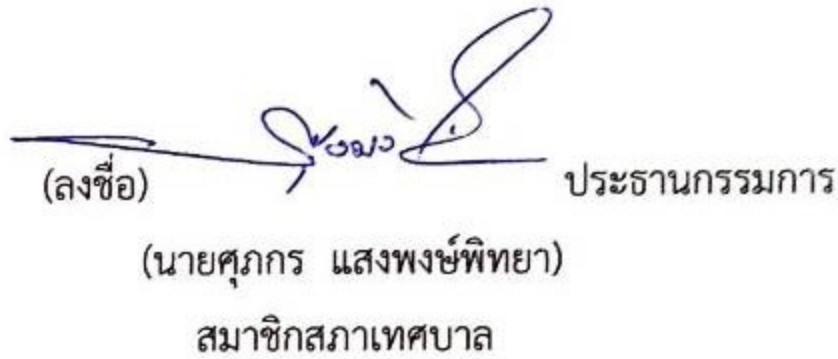 (ลงชื่อ) ประธานกรรมการ
(นายศุภกร แสงพงษ์พิทยา)
สมาชิกสภาเทศบาล